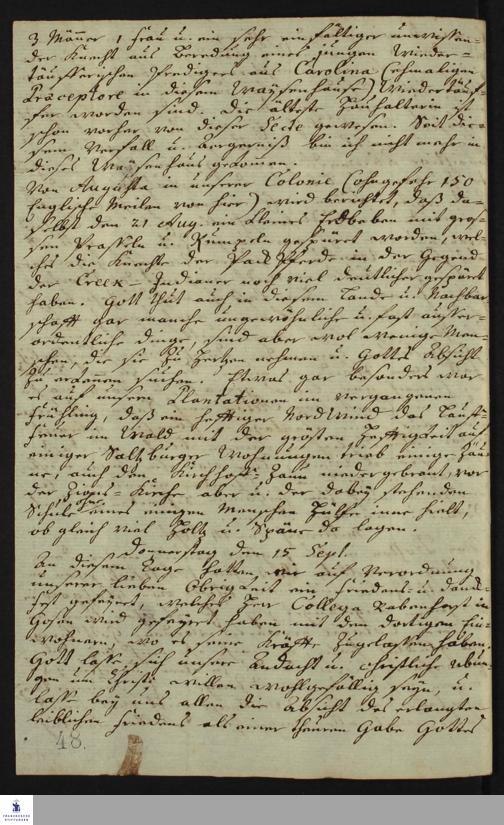 3 Männer 1 Frau u. ein sehr einfältiger unwissen-
der Knecht aus Beredung eines jungen Wieder-
täufferischen Predigers aus Carolina (ehmaligen
Praeceptore in diesem Waysenhause) Wiedertäuf-
fer worden sind. Die älteste Haushalterin ist
schon vorher von dieser Secte gewesen. Seit die-
sem Verfall u. Aergerniß bin ich nicht mehr in
dieses Waysenhaus gekommen.
Von Augusta in unserer Colonie (ohngefehr 150
Englische Meilen von hier) wird berichtet, daß da-
selbst den 21 Aug. ein kleines Erdbeben mit gros-
sem Prasseln u. Rumpeln gespüret worden, wel-
ches die Knechte der Pack Pferde in der Gegend
der Creek-Indianer noch viel deutlicher gespüret
haben. Gott thut auch in diesem Lande u. Nachbar-
schafft gar manche ungewöhnliche u. fast ausser-
ordentliche Dinge, sind aber wol wenige Men-
schen, die sie zu Herzen nehmen u. Gottes Absicht
zu erkennen suchen. Etwas gar besonders war
es auf unsern Plantationen im vergangenen
Frühling, daß ein hefftiger Nordwind das
Feuer im Wald mit der grösten Hefftigkeit auf
einiger Saltzburger Wohnungen trieb einige Zäu-
ne, auch den Kirchhofs-Zaun niedergebrant, vor
der Zions-Kirche aber u. der dabey stehenden
Schule ohne eines einigen Menschen Hülffe inne hielt,
ob gleich viel Holtz u. Späne da lagen.
Donnerstag den 15 Sept.
An diesem Tage hatten wir auf Verordnung
unserer lieben Obrigkeit ein Friedens- u. Danck-
fest gefeyert, welches Herr Collega Rabenhorst in
Gosen wird gefeyert haben mit den dortigen Ein-
wohnern, wo es seine Kräffte zugelassen haben.
Gott lasse sich unsere Andacht u. christliche Übun-
gen um Christi willen wohlgefällig seyn, u.
lasse bey uns allen die Absicht des erlangten
leiblichen Friedens als einer theuren Gabe Gottes
48.
FRANCKESCHE
STIFTUNGEN